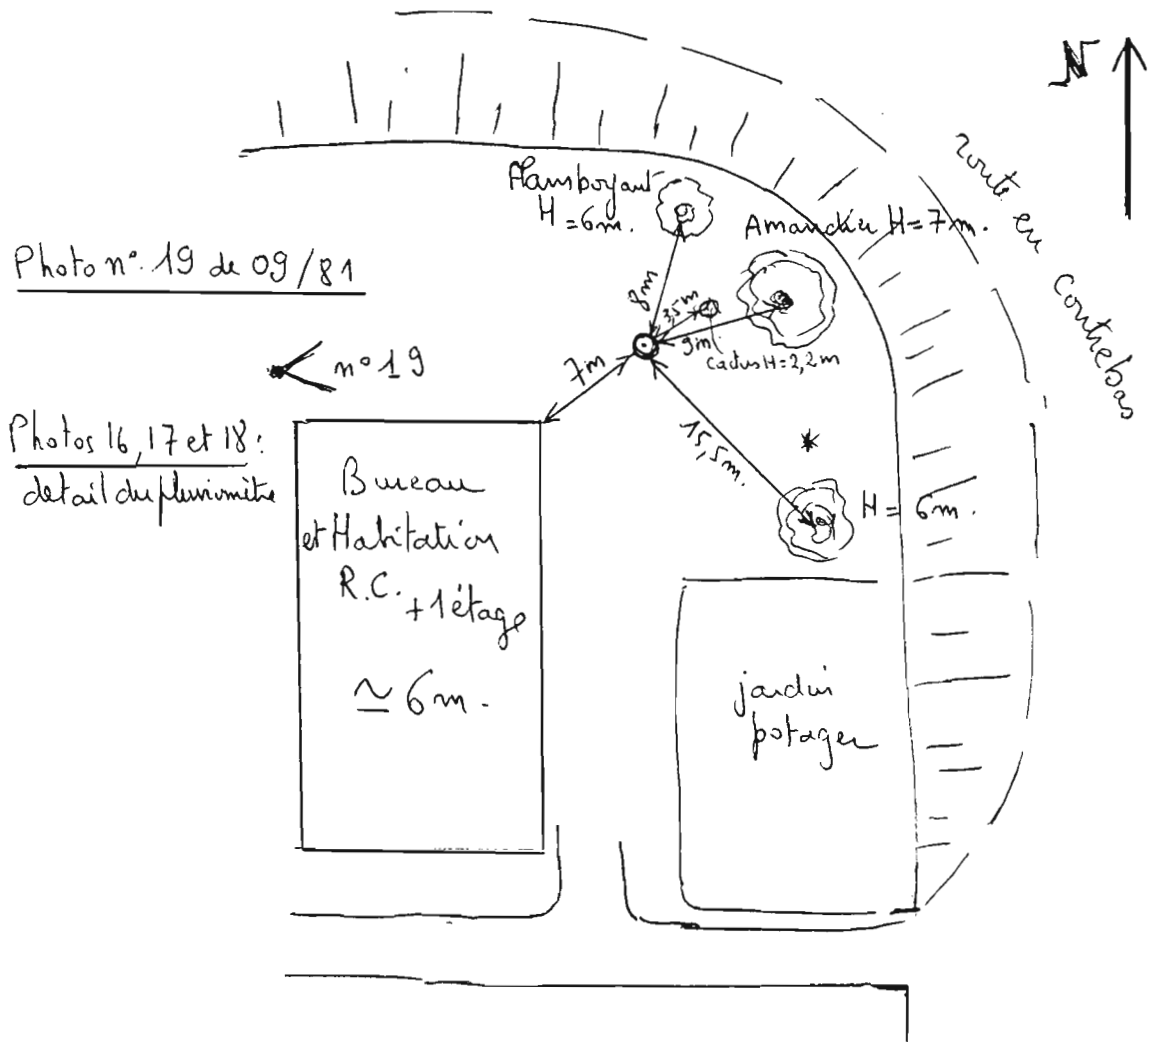 N
route en contrebas
Flamboyant
H = 6m.
Amandier H = 7m.
Photo n° 19 de 09/81
8m
3,5m
9m
cactus H = 2,2m
n° 19
7m
Photos 16, 17 et 18 :
detail du pluviomètre
15,5m.
H = 6m.
Bureau
et Habitation
R.C. + 1 étage
≃ 6m.
jardin
potager